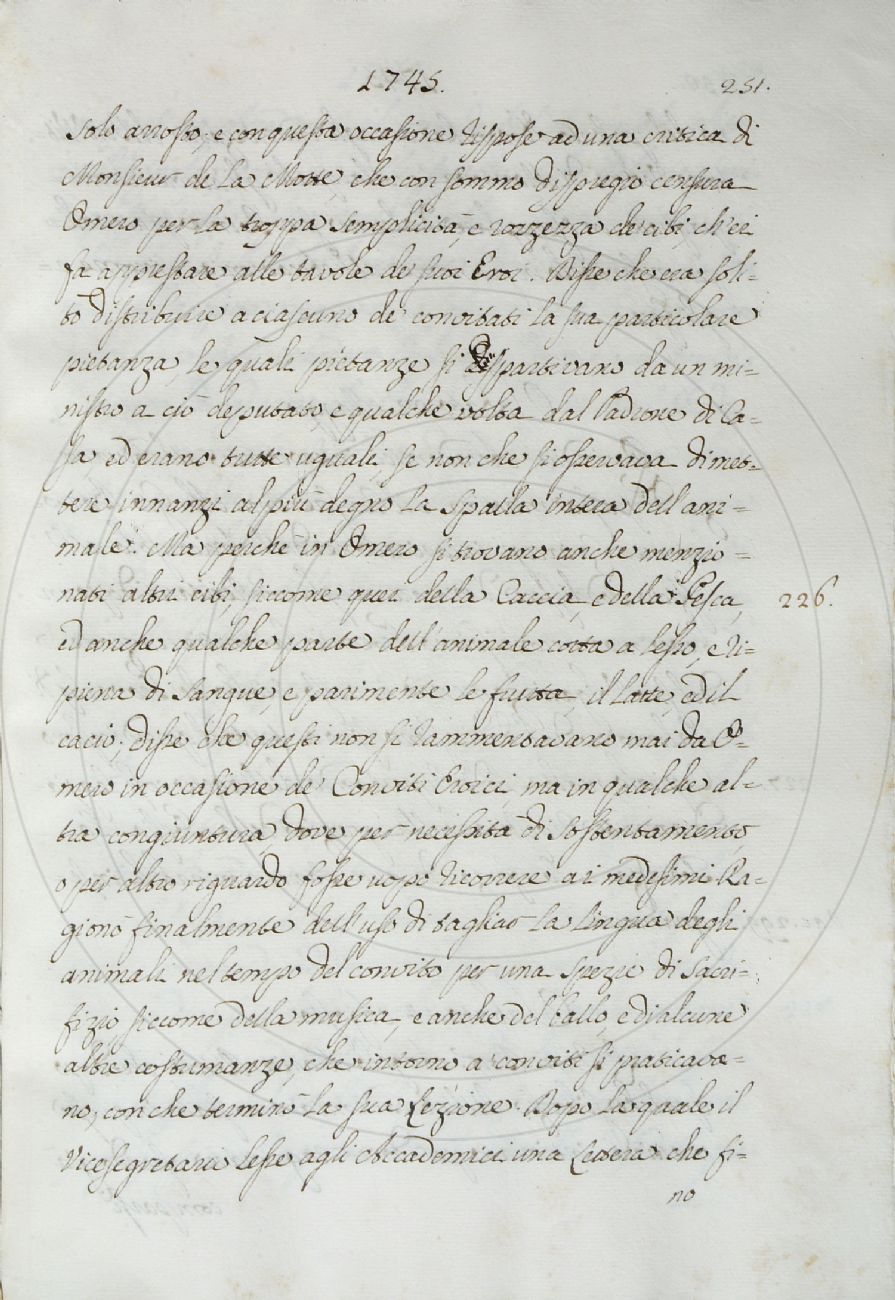 1745. 251.
solo arrosto; e con questa occasione rispose ad una critica di
Monsieur de la Motte, che con sommo dispregio censura
Omero per la troppa semplicità, e rozzezza de' cibi, ch'ei
fa apprestare alle tavole de' suoi Eroi. Disse che era soli=
to distribuire a ciascuno de' convitati la sua particolare
pietanza, le quali pietanze si dispartivano da un mi=
nistro a ciò deputato, e qualche volta dal Padrone di Ca=
sa ed erano tutte uguali, se non che si osservava di met=
tere innanzi al più degno la spalla intera dell'ani=
male. Ma perchè in Omero si trovano anche menzio=
nati altri cibi, siccome quei della Caccia, e della Pesca, 226.
ed anche qualche parte dell'animale cotta a lesso, e ri=
piena di sangue, e parimente le frutta, il latte, ed il
cacio; disse che questi non si rammentavano mai da O=
mero in occasione de' Conviti Eroici, ma in qualche al=
tra congiuntura, dove per necessità di sostentamento,
o per altro riguardo fosse uopo ricorrere ai medesimi. Ra=
gionò finalmente dell'uso di tagliar la lingua degli
animali nel tempo del convito per una spezie di sacri=
fizio, siccome della musica, e anche del ballo, e di alcune
altre costumanze, che intorno a' conviti si praticava=
no, con che terminò la sua Lezione. Dopo la quale il
Vicesegretario lesse agli Accademici una Lettera che fi=
no